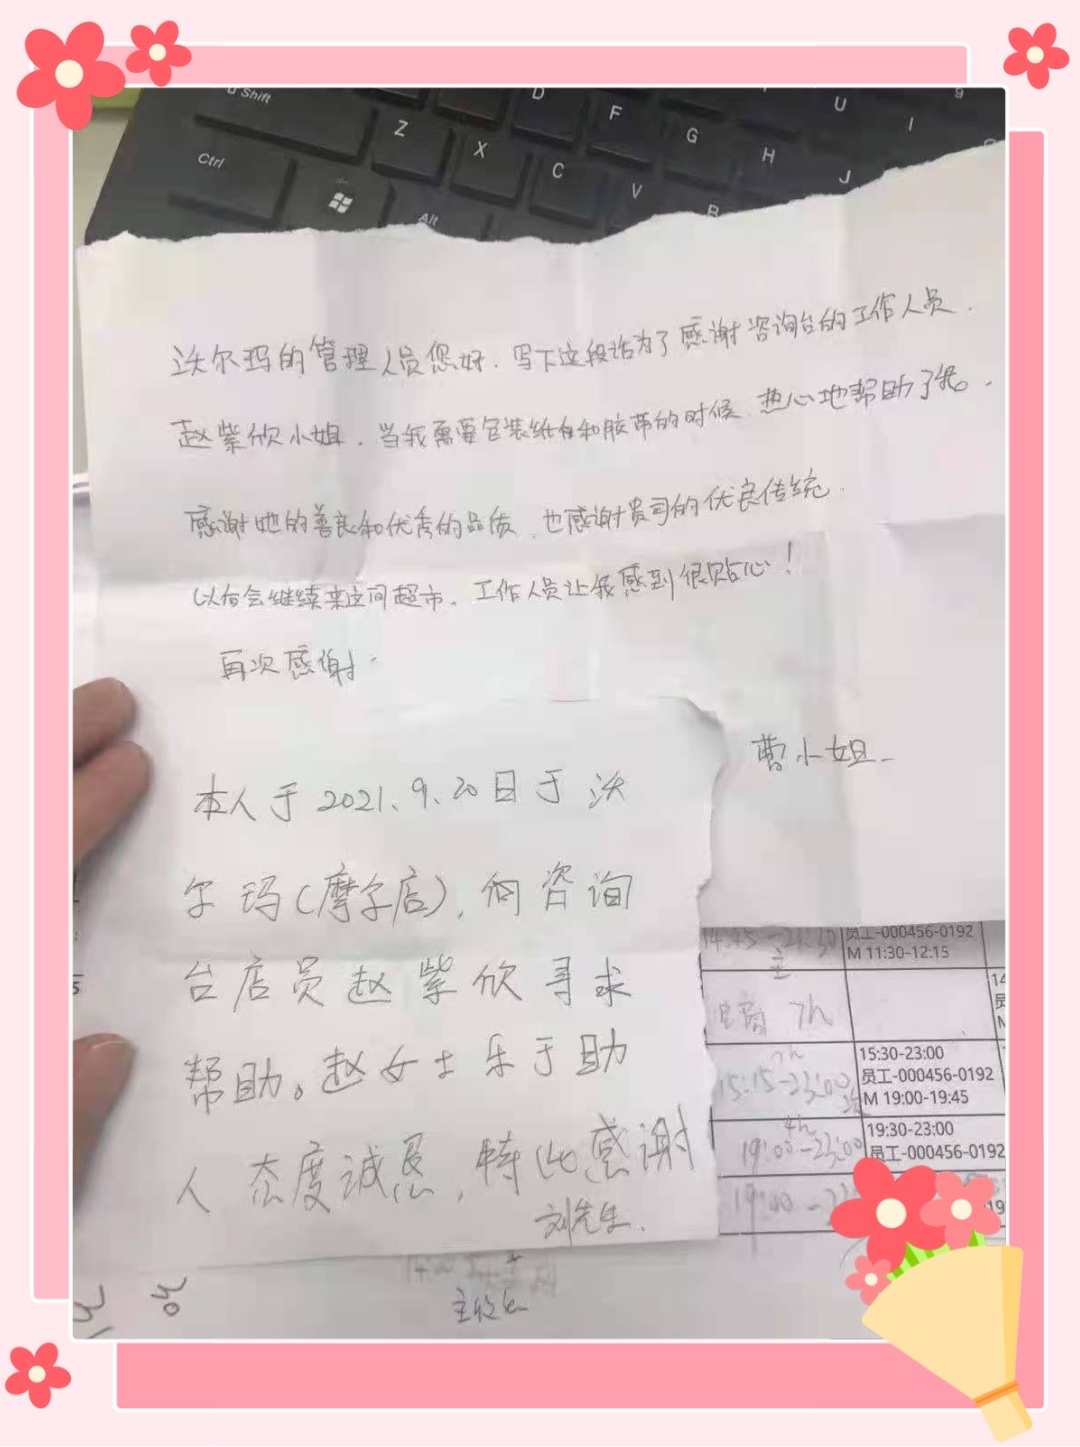 Shift
D
F
G
U
I
9
Z
X
C
V
B
H
J
Ctrl
Alt
沃尔玛的管理人员您好.写下这段话为了感谢咨询台的工作人员.
赵紫欣小姐.当我需要包装纸和胶带的时候.热心地帮助了我.
感谢她的善良和优秀的品质.也感谢贵司的优良传统.
以后会继续来这间超市.工作人员让我感到很贴心!
再次感谢.
曹小姐.
本人于2021.9.20日于沃
尔玛(摩尔店),向咨询
台店员赵紫欣寻求
帮助。赵女士乐于助
人 态度诚恳,特此感谢
刘先生.
14:45-21:30
员工-000456-0192
M 11:30-12:15
7h
15:15-23:00
15:30-23:00
员工-000456-0192
M 19:00-19:45
4h
19:00-23:00
19:30-23:00
员工-000456-0192
19:00